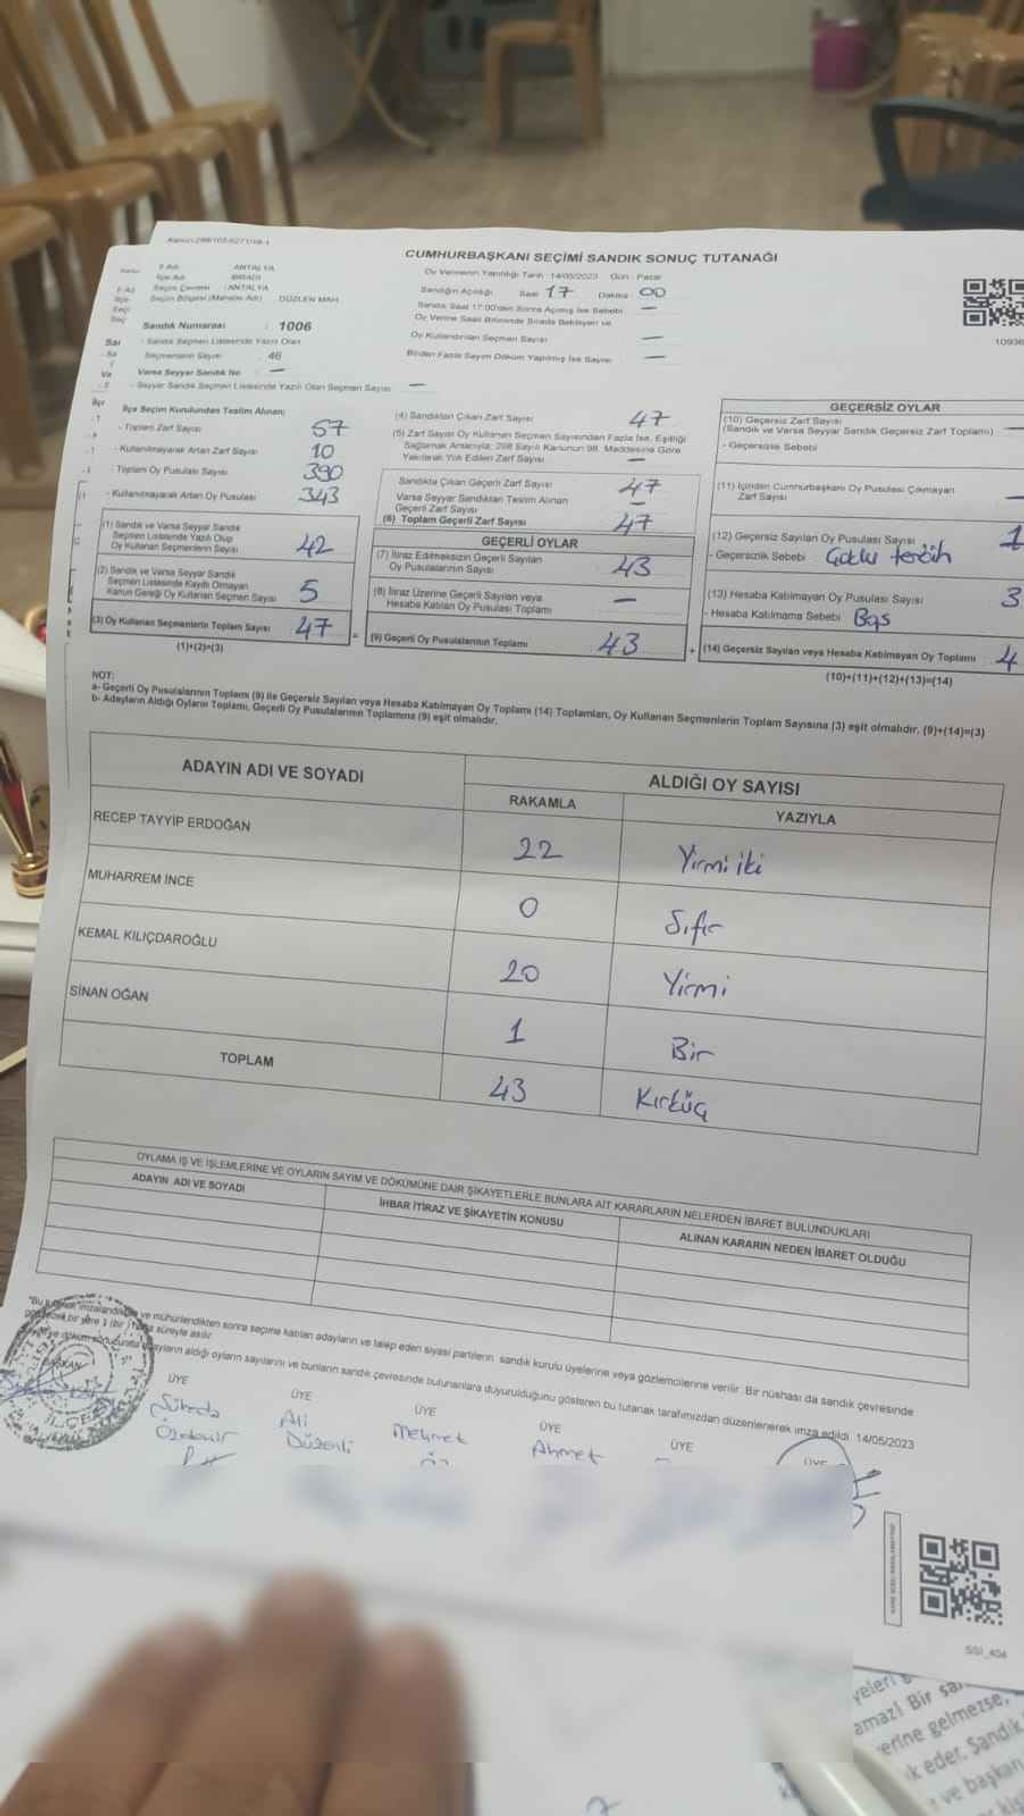 CUMHURBAŞKANI SEÇİMİ SANDIK SONUÇ TUTANAĞI
Oy Vermenin Yapıldığı Tarih : 14/05/2023 Gün : Pazar
Sandığın Açıldığı Saat 17 Dakika 00
Sandık Saat 17:00'den Sonra Açılmış İse Sebebi —
Oy Verme Saati Bitiminde Sırada Bekleyen ve
Oy Kullandırılan Seçmen Sayısı —
Birden Fazla Sayım Döküm Yapılmış İse Sayısı —
İl Adı : ANTALYA
İlçe Adı
Seçim Çevresi : ANTALYA
Seçim Bölgesi (Mahalle Adı) : DÜZLEN MAH.
Sandık Numarası : 1006
Sandık Seçmen Listesinde Yazılı Olan
Seçmenlerin Sayısı : 46
Varsa Seyyar Sandık No : —
- Seyyar Sandık Seçmen Listesinde Yazılı Olan Seçmen Sayısı —
10936
İlçe Seçim Kurulundan Teslim Alınan;
- Toplam Zarf Sayısı 57
- Kullanılmayarak Artan Zarf Sayısı 10
- Toplam Oy Pusulası Sayısı 390
- Kullanılmayarak Artan Oy Pusulası 343
(1) Sandık ve Varsa Seyyar Sandık
Seçmen Listesinde Yazılı Olup
Oy Kullanan Seçmenlerin Sayısı 42
(2) Sandık ve Varsa Seyyar Sandık
Seçmen Listesinde Kayıtlı Olmayan
Kanun Gereği Oy Kullanan Seçmen Sayısı 5
(3) Oy Kullanan Seçmenlerin Toplam Sayısı 47
(1)+(2)=(3)
(4) Sandıktan Çıkan Zarf Sayısı 47
(5) Zarf Sayısı Oy Kullanan Seçmen Sayısından Fazla İse, Eşitliği
Sağlamak Amacıyla; 298 Sayılı Kanunun 98. Maddesine Göre
Yakılarak Yok Edilen Zarf Sayısı —
Sandıkta Çıkan Geçerli Zarf Sayısı 47
Varsa Seyyar Sandıktan Teslim Alınan
Geçerli Zarf Sayısı —
(6) Toplam Geçerli Zarf Sayısı 47
GEÇERLİ OYLAR
(7) İtiraz Edilmeksizin Geçerli Sayılan
Oy Pusulalarının Sayısı 43
(8) İtiraz Üzerine Geçerli Sayılan veya
Hesaba Katılan Oy Pusulası Toplamı —
= (9) Geçerli Oy Pusulalarının Toplamı 43
GEÇERSİZ OYLAR
(10) Geçersiz Zarf Sayısı
(Sandık ve Varsa Seyyar Sandık Geçersiz Zarf Toplamı) —
- Geçersizlik Sebebi
(11) İçinden Cumhurbaşkanı Oy Pusulası Çıkmayan
Zarf Sayısı —
(12) Geçersiz Sayılan Oy Pusulası Sayısı 1
- Geçersizlik Sebebi Çoklu tercih
(13) Hesaba Katılmayan Oy Pusulası Sayısı 3
- Hesaba Katılmama Sebebi Boş
+ (14) Geçersiz Sayılan veya Hesaba Katılmayan Oy Toplamı 4
(10)+(11)+(12)+(13)=(14)
NOT:
a- Geçerli Oy Pusulalarının Toplamı (9) ile Geçersiz Sayılan veya Hesaba Katılmayan Oy Toplamı (14) Toplamları, Oy Kullanan Seçmenlerin Toplam Sayısına (3) eşit olmalıdır. (9)+(14)=(3)
b- Adayların Aldığı Oyların Toplamı, Geçerli Oy Pusulalarının Toplamına (9) eşit olmalıdır.
ADAYIN ADI VE SOYADI ALDIĞI OY SAYISI
RAKAMLA YAZIYLA
RECEP TAYYİP ERDOĞAN 22 Yirmi iki
MUHARREM İNCE 0 Sıfır
KEMAL KILIÇDAROĞLU 20 Yirmi
SİNAN OĞAN 1 Bir
TOPLAM 43 Kırküç
OYLAMA İŞ VE İŞLEMLERİNE VE OYLARIN SAYIM VE DÖKÜMÜNE DAİR ŞİKAYETLERLE BUNLARA AİT KARARLARIN NELERDEN İBARET BULUNDUKLARI
ADAYIN ADI VE SOYADI İHBAR İTİRAZ VE ŞİKAYETİN KONUSU ALINAN KARARIN NEDEN İBARET OLDUĞU
ve mühürlendikten sonra seçime katılan adayların ve talep eden siyasi partilerin sandık kurulu üyelerine veya gözlemcilerine verilir. Bir nüshası da sandık çevresinde
bir yere 1 (bir) süreyle asılır.
aldığı oyların sayılarını ve bunların sandık çevresinde bulunanlara duyurulduğunu gösteren bu tutanak tarafımızdan düzenlenerek imza edildi. 14/05/2023
BAŞKAN ÜYE ÜYE ÜYE ÜYE ÜYE ÜYE
Ali Mehmet Ahmet
Düzenli
SSI_404
yeleri
amaz! Bir
erine gelmezse,
k eder. Sandık
ve başkan